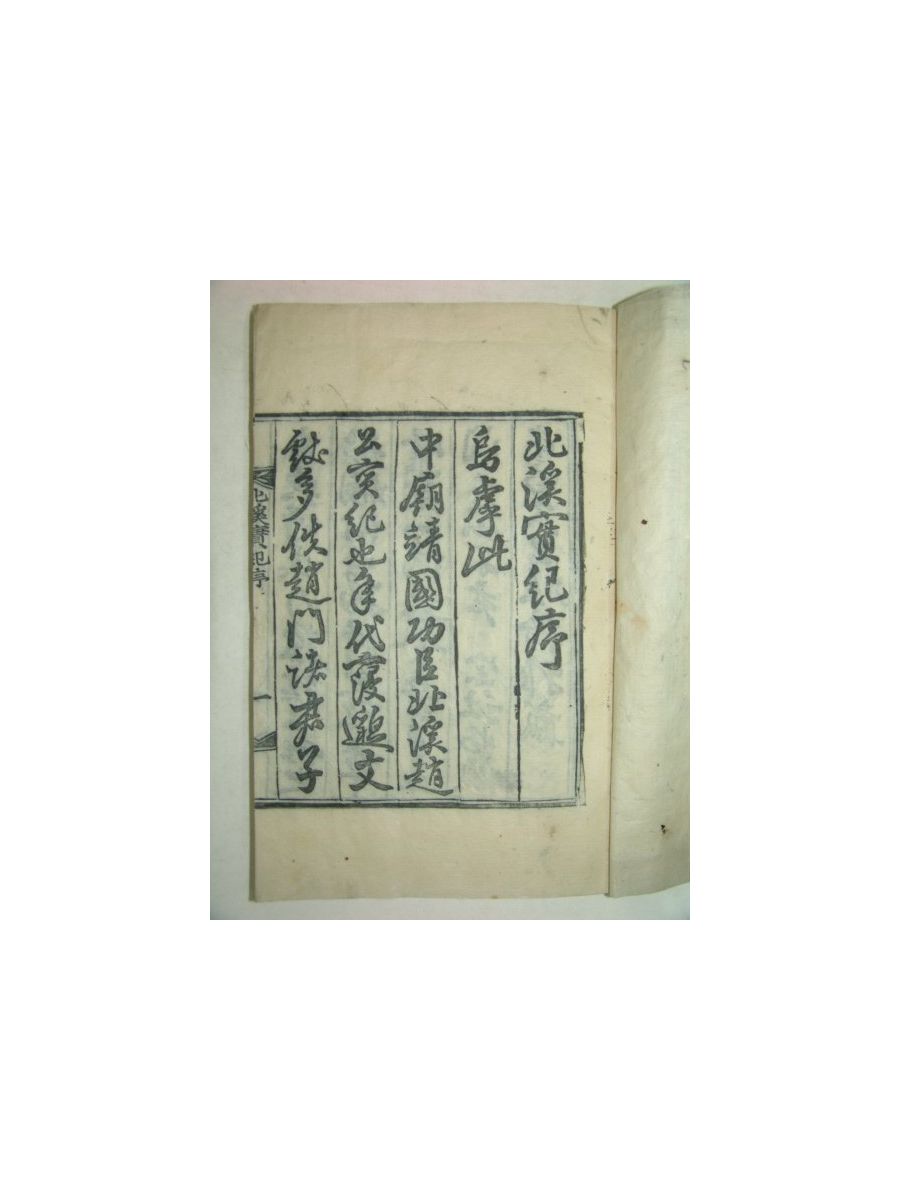 北溪實紀序
烏虖此
中廟靖國功臣北溪趙
公实紀也年代寖邈文
獻多佚趙門諸君子
北溪實紀序
一